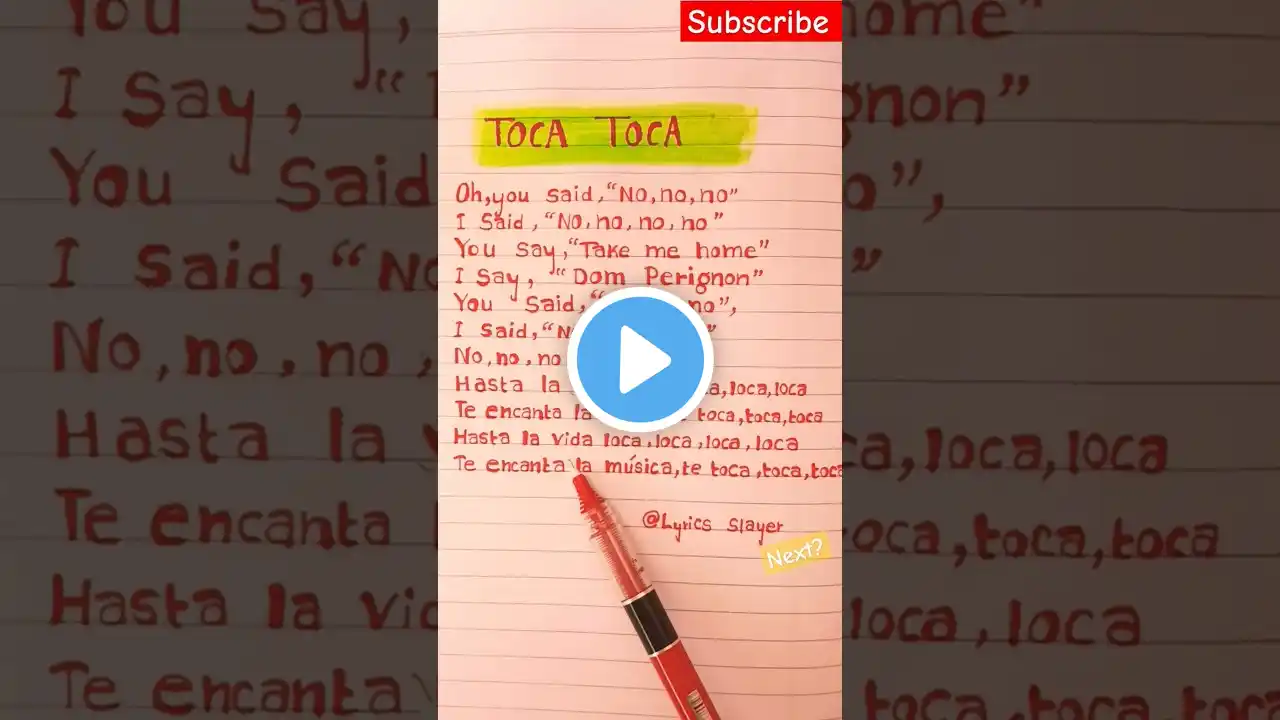 Subscribe
TOCA TOCA
Oh,you said,“No,no,no”
I Said,“No,no,no,no”
You Say,“Take me home”
I Say, “Dom Perignon”
You Said,“ no”,
I Said,“
No,no,no
Hasta la loca,loca
Te encanta la toca,toca,toca
Hasta la vida loca,loca,loca,loca
Te encanta la música,te toca,toca,toca
@Lyrics Slayer
Next?